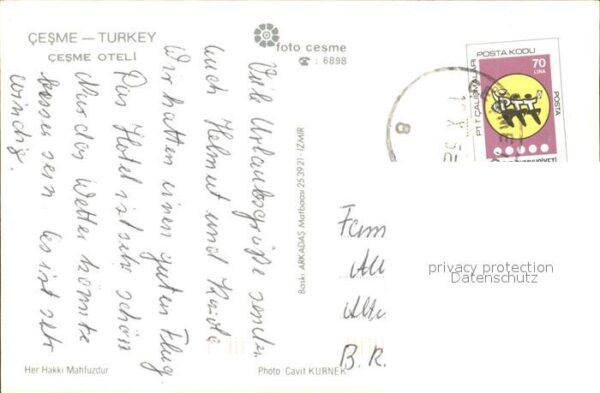 ÇEŞME — TURKEY
ÇEŞME OTELİ
foto cesme
☎ : 6898
Viele Urlaubsgrüße senden
Euch Helmut und
Wir hatten einen guten Flug.
Das Hotel ist sehr schön
Nur das Wetter könnte
besser sein. Es ist sehr
windig.
Baskı: ARKADAŞ Matbaası 253921 - İZMİR
POSTA KODU
70
LİRA
PTT ÇALIŞMALARI
POSTA
PTT
8
Fam
B.R.
privacy protection
Datenschutz
Her Hakkı Mahfuzdur
Photo Cavit KÜRNEK